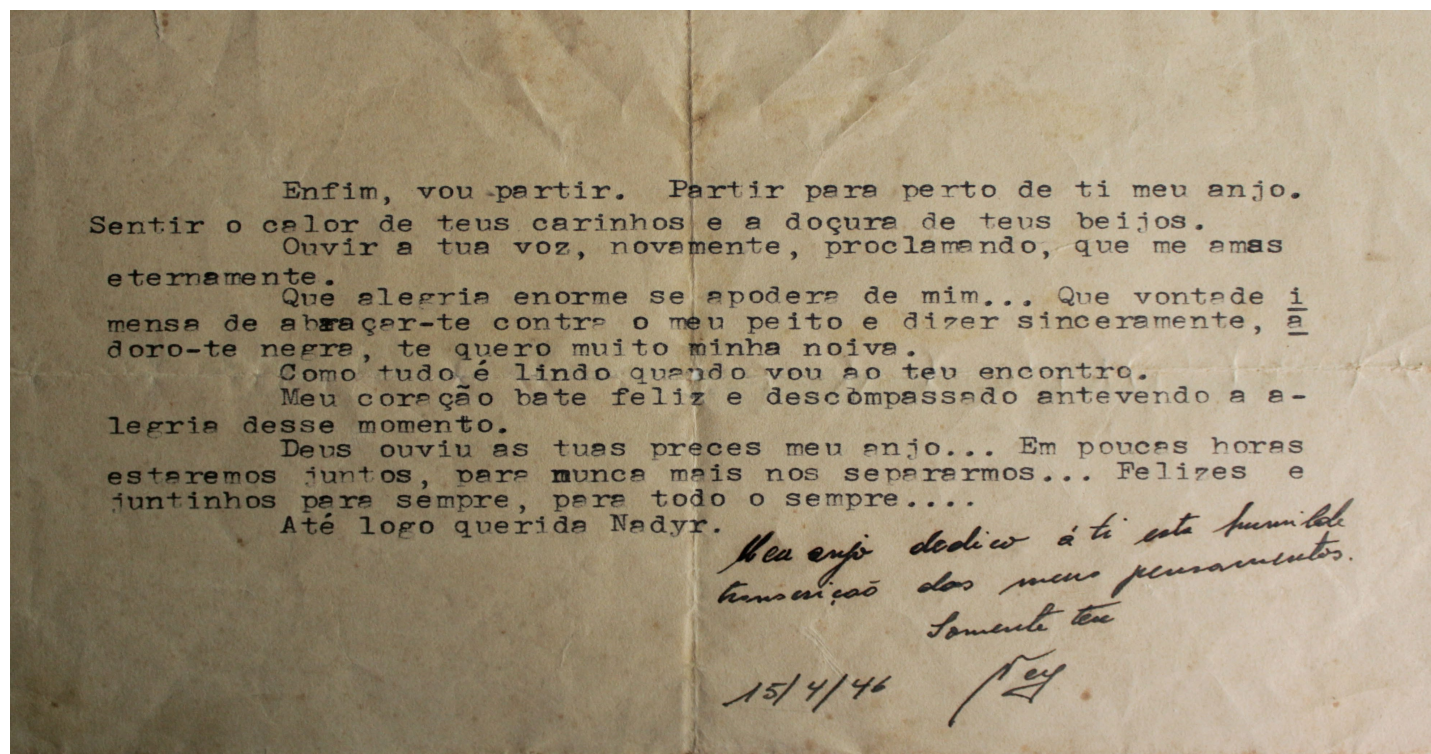 Enfim, vou partir. Partir para perto de ti meu anjo.
Sentir o calor de teus carinhos e a doçura de teus beijos.
Ouvir a tua voz, novamente, proclamando, que me amas
eternamente.
Que alegria enorme se apodera de mim... Que vontade i
mensa de abraçar-te contra o meu peito e dizer sinceramente, a
doro-te negra, te quero muito minha noiva.
Como tudo é lindo quando vou ao teu encontro.
Meu coração bate feliz e descompassado antevendo a a-
legria desse momento.
Deus ouviu as tuas preces meu anjo... Em poucas horas
estaremos juntos, para nunca mais nos separarmos... Felizes e
juntinhos para sempre, para todo o sempre....
Até logo querida Nadyr.
Meu anjo dedico á ti esta humilde
transcrição dos meus pensamentos.
Somente teu
15/4/46 Ney